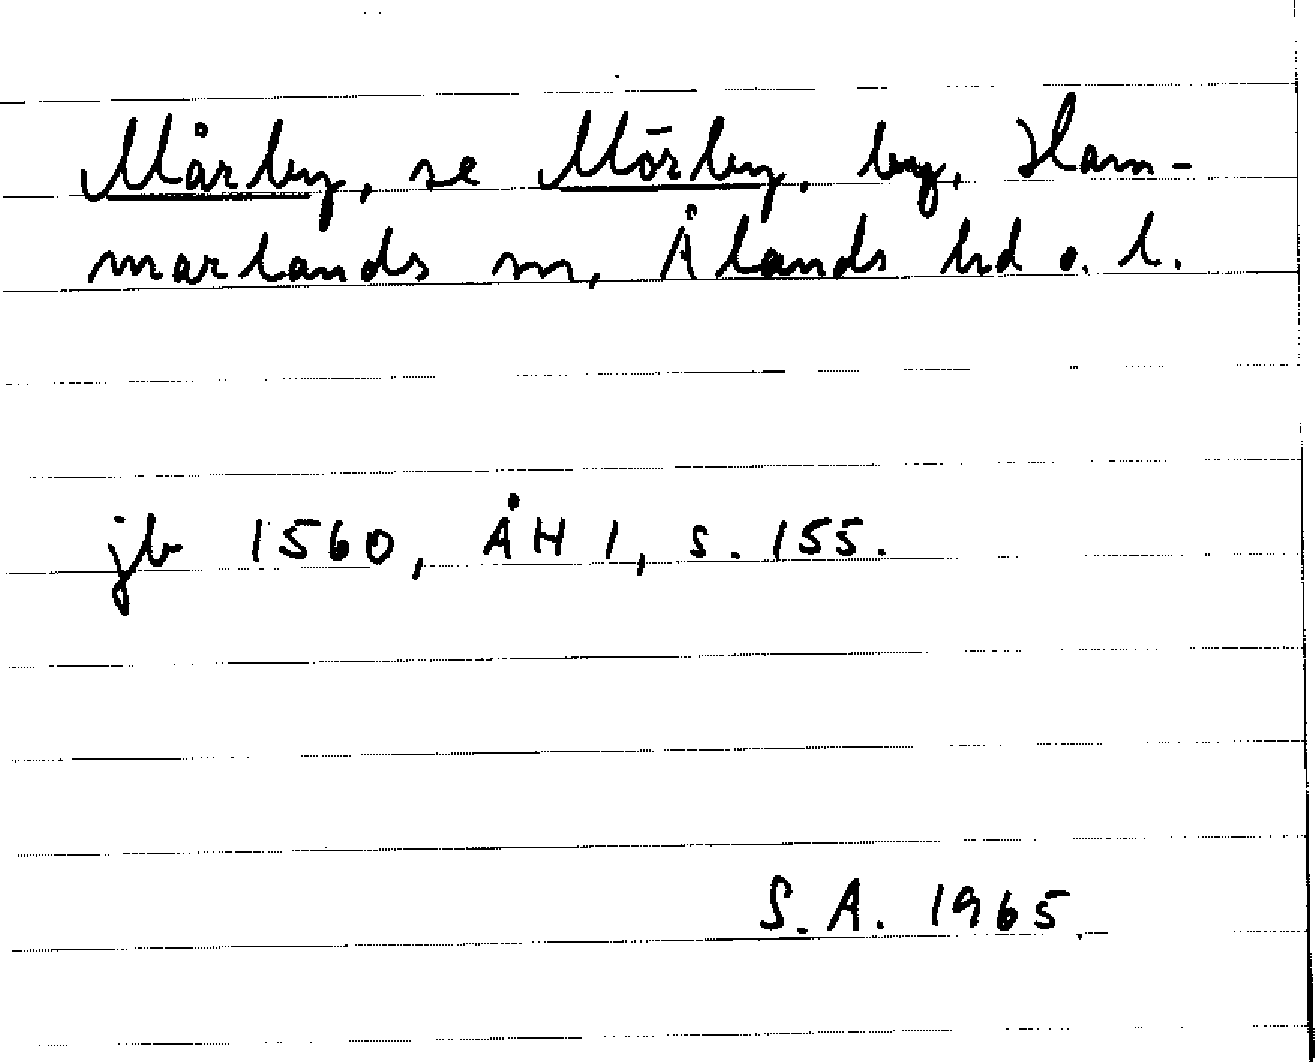 Mårby, se Mörby, by, Ham-
marlands sn, Ålands hd o. l.
jb 1560, ÅH 1, s. 155.
S. A. 1965.